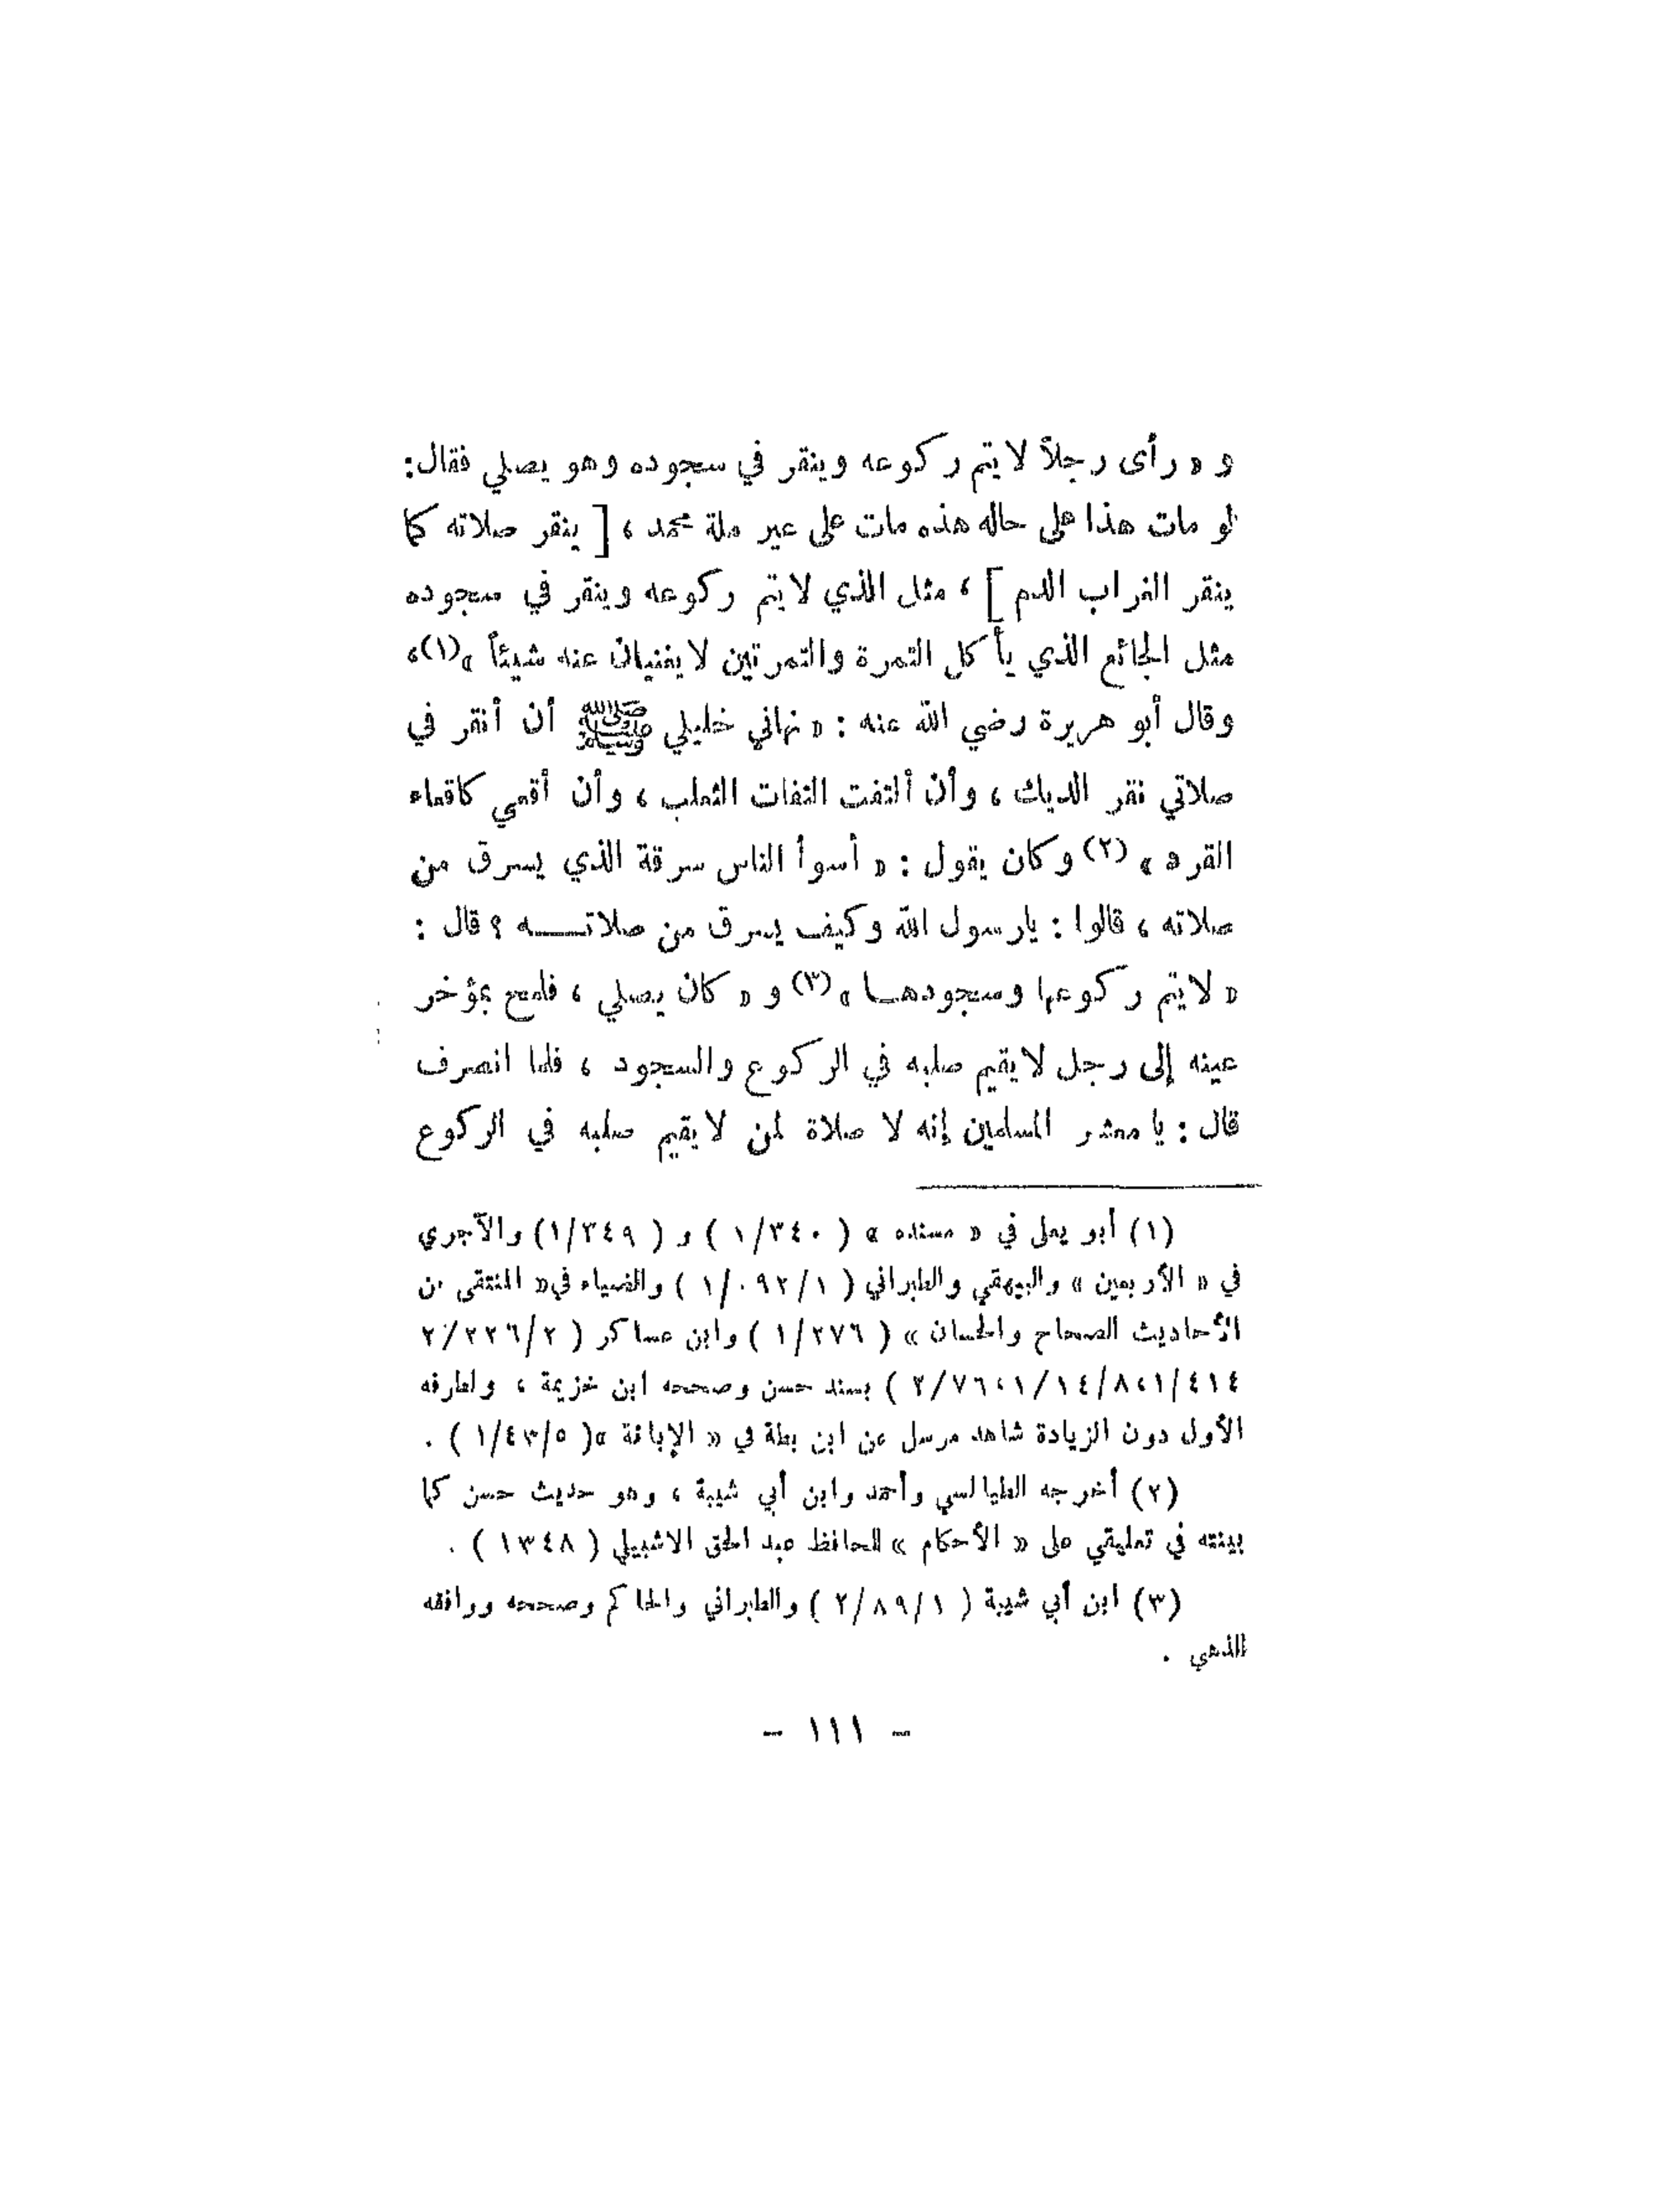 و « رأى رجلاً لا يتم ركوعه وينقر في سجوده وهو يصلي فقال:
لو مات هذا على حاله هذه مات على غير ملة محمد ، [ ينقر صلاته كما
ينقر الغراب الدم ] ، مثل الذي لا يتم ركوعه وينقر في سجوده
مثل الجائع الذي يأكل التمرة والتمرتين لا يغنيان عنه شيئاً »(١)،
وقال أبو هريرة رضي الله عنه : « نهاني خليلي ﷺ أن أنقر في
صلاتي نقر الديك ، وأن ألتفت التفات الثعلب ، وأن أقعي كاقعاء
القرد » (٢) وكان يقول : « أسوأ الناس سرقة الذي يسرق من
صلاته ، قالوا : يا رسول الله وكيف يسرق من صلاتـــه ؟ قال :
« لا يتم ركوعها وسجودهـا » (٣) و « كان يصلي ، فلمح بمؤخر
عينه إلى رجل لا يقيم صلبه في الركوع والسجود ، فلما انصرف
قال : يا معشر المسلمين إنه لا صلاة لمن لا يقيم صلبه في الركوع
(١) أبو يعلى في « مسنده » ( ١/٣٤٠ ) و ( ١/٣٤٩) والآجري
في « الأربعين » والبيهقي والطبراني ( ١/٠٩٢/١ ) والضياء في « المنتقى من
الأحاديث الصحاح والحسان » ( ١/٢٧٦ ) وابن عساكر ( ٢/٢٢٦/٢
٤١٤/١،٨/١٤/١،٧٦/٢ ) بسند حسن وصححه ابن خزيمة ، ولطرفه
الأول دون الزيادة شاهد مرسل عن ابن بطة في « الإبانة »( ١/٤٣/٥ ) .
(٢) أخرجه الطيالسي وأحمد وابن أبي شيبة ، وهو حديث حسن كما
بينته في تعليقي على « الأحكام » للحافظ عبد الحق الاشبيلي ( ١٣٤٨ ) .
(٣) ابن أبي شيبة ( ٢/٨٩/١ ) والطبراني والحاكم وصححه ووافقه
الذهبي .
- ١١١ -